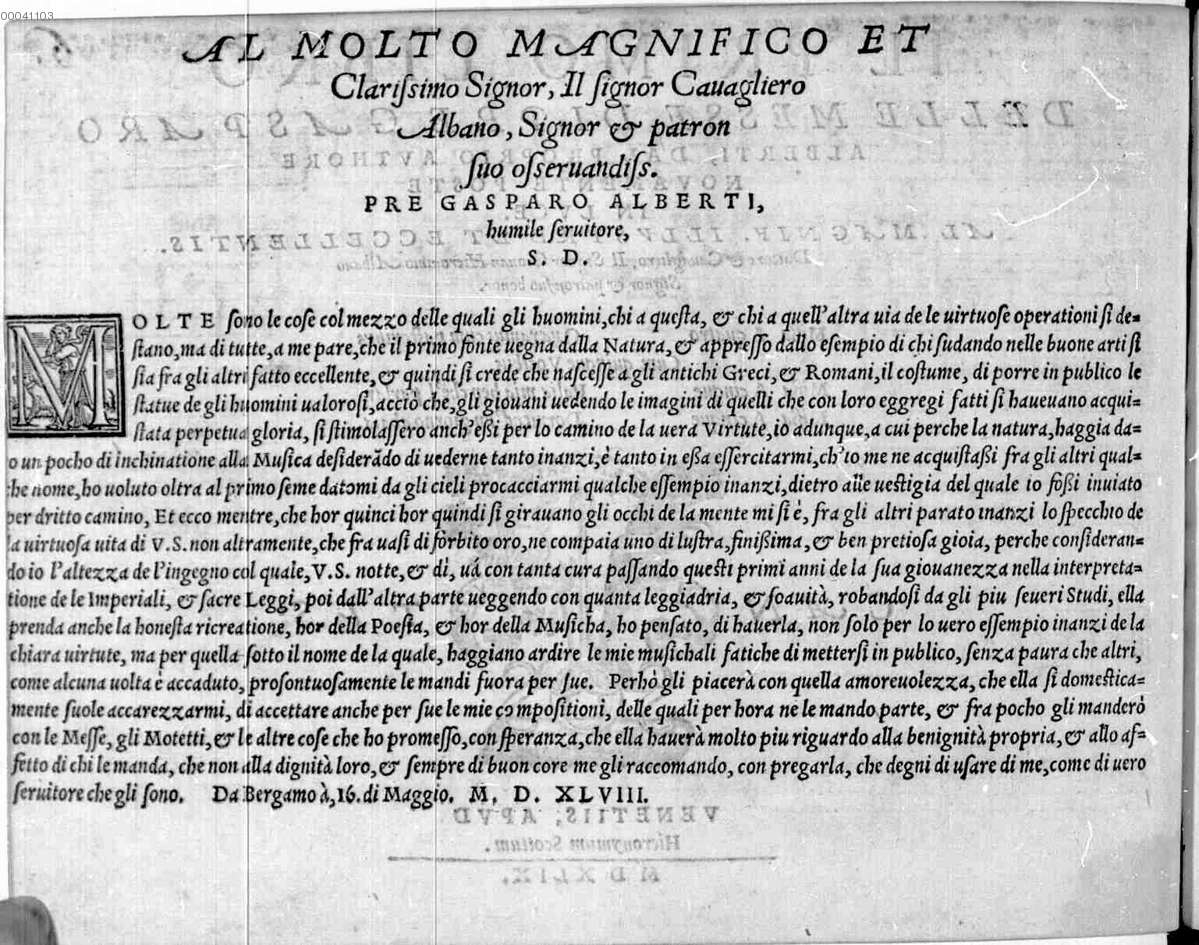 00041103
AL MOLTO MAGNIFICO ET
Clariſsimo Signor, Il ſignor Cauagliero
Albano, Signor & patron
ſuo oſſeruandiſs.
PRE GASPARO ALBERTI,
humile ſeruitore,
S. D.
MOLTE ſono le coſe col mezzo delle quali gli huomini, chi a queſta, & chi a quell'altra uia de le uirtuoſe operationi ſi de=
ſtano, ma di tutte, a me pare, che il primo fonte uegna dalla Natura, & appreſſo dallo eſempio di chi ſudando nelle buone arti ſi
ſia fra gli altri fatto eccellente, & quindi ſi crede che naſceſſe a gli antichi Greci, & Romani, il coſtume, di porre in publico le
ſtatue de gli huomini ualoroſi, acciò che, gli giouani uedendo le imagini di quelli che con loro eggregi fatti ſi haueuano acqui=
ſtata perpetua gloria, ſi ſtimolaſſero anch'eßi per lo camino de la uera Virtute, iò adunque, a cui perche la natura, haggia da=
o un pocho di inchinatione alla Muſica deſiderãdo di uederne tanto inanzi, è tanto in eßa eſſercitarmi, ch'io me ne acquiſtaßi fra gli altri qual=
he nome, ho uoluto oltra al primo ſeme datomi da gli cieli procacciarmi qualche eſſempio inanzi, dietro alle ueſtigia del quale io foßi inuiato
per dritto camino, Et ecco mentre, che hor quinci hor quindi ſi girauano gli occhi de la mente mi ſi è, fra gli altri parato inanzi lo ſpecchio de
la uirtuoſa uita di V.S. non altramente, che fra uaſi di forbito oro, ne compaia uno di luſtra, finißima, & ben pretioſa gioia, perche conſideran=
do io l'altezza de l'ingegno col quale, V.S. notte, & dì, uá con tanta cura paſſando queſti primi anni de la ſua giouanezza nella interpreta=
tione de le Imperiali, & ſacre Leggi, poi dall'altra parte ueggendo con quanta leggiadria, & ſoauità, robandoſi da gli piu ſeueri Studi, ella
prenda anche la honeſta ricreatione, hor della Poeſia, & hor della Muſicha, ho penſato, di hauerla, non ſolo per lo uero eſſempio inanzi de la
chiara uirtute, ma per quella ſotto il nome de la quale, haggiano ardire le mie muſichali fatiche di metterſi in publico, ſenza paura che altri,
come alcuna uolta è accaduto, proſontuoſamente le mandi fuora per ſue. Perhò gli piacerà con quella amoreuolezza, che ella ſi domeſtica=
mente ſuole accarezzarmi, di accettare anche per ſue le mie compoſitioni, delle quali per hora ne le mando parte, & fra pocho gli manderò
con le Meſſe, gli Motetti, & le altre coſe che ho promeſſo, con ſperanza, che ella hauerà molto piu riguardo alla benignità propria, & allo af=
fetto di chi le manda, che non alla dignità loro, & ſempre di buon core me gli raccomando, con pregarla, che degni di uſare di me, come di uero
ſeruitore che gli ſono. Da Bergamo à, 16. di Maggio. M. D. XLVIII.